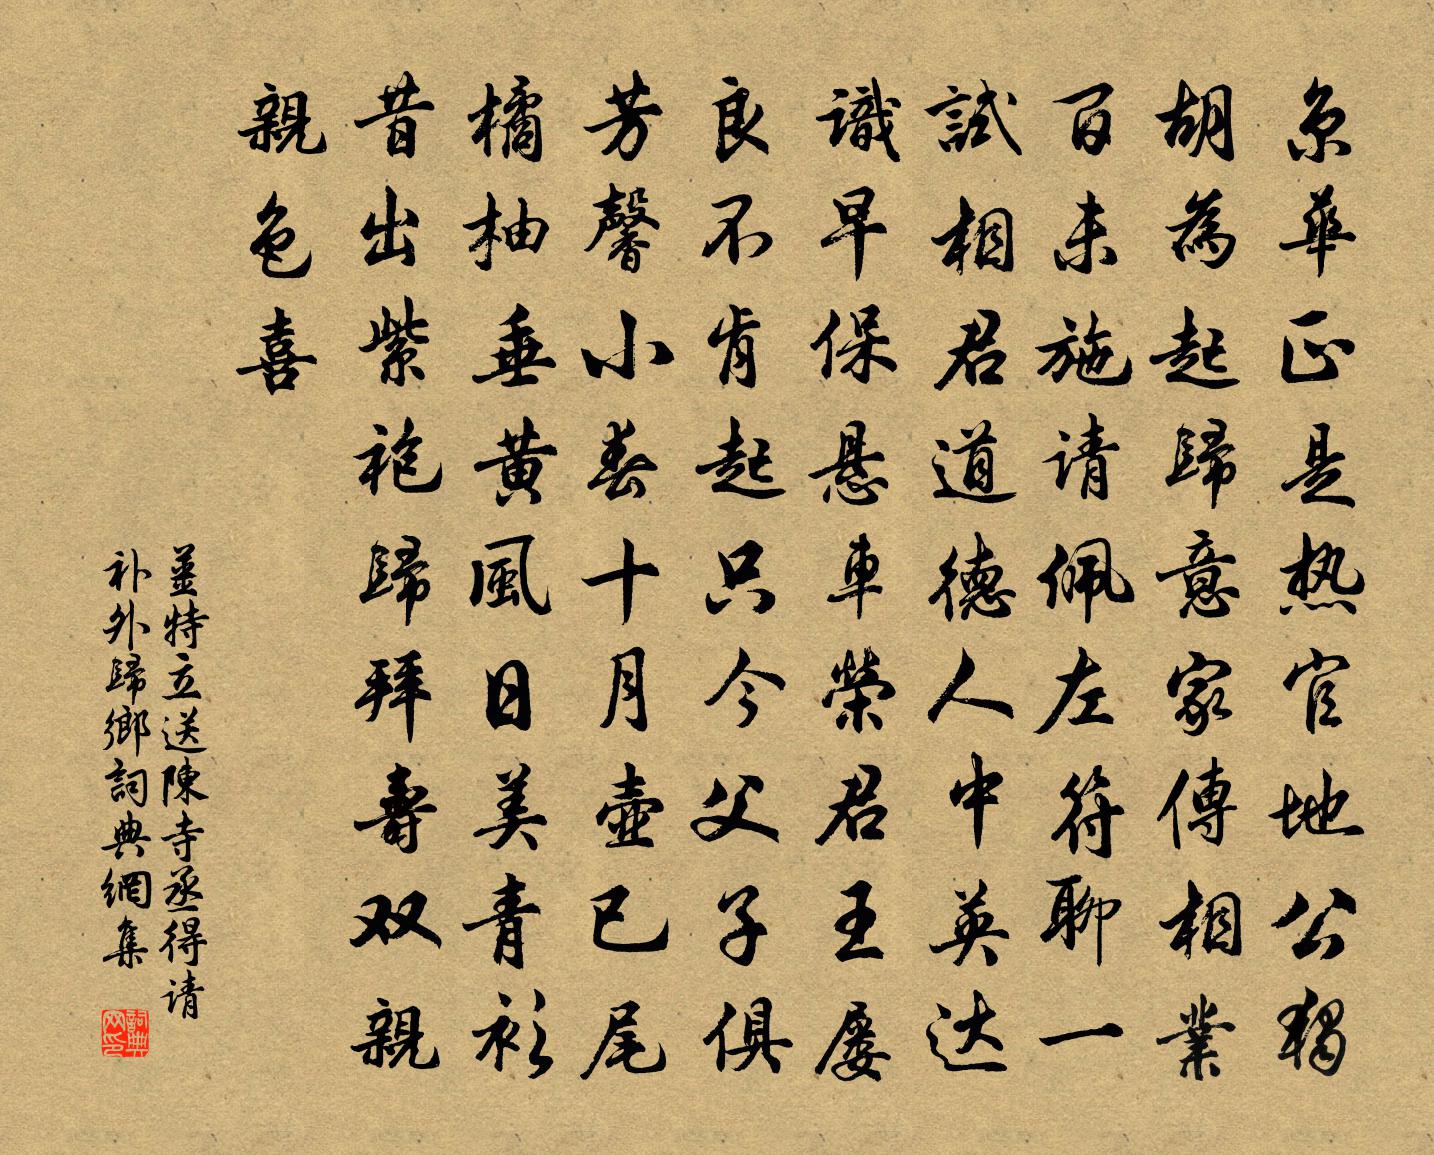 京華正是热官地公獨
胡為起歸意家傳相業
百未施请佩左符聊一
試相君道德人中英达
識早保悬車榮君王屡
良不肯起只今父子俱
芳馨小春十月壺已尾
橘柚垂黄風日美青衫
昔出紫袍歸拜壽双親
親色喜
薑特立送陳寺丞得请
补外歸鄉詞典網集
詞典网印